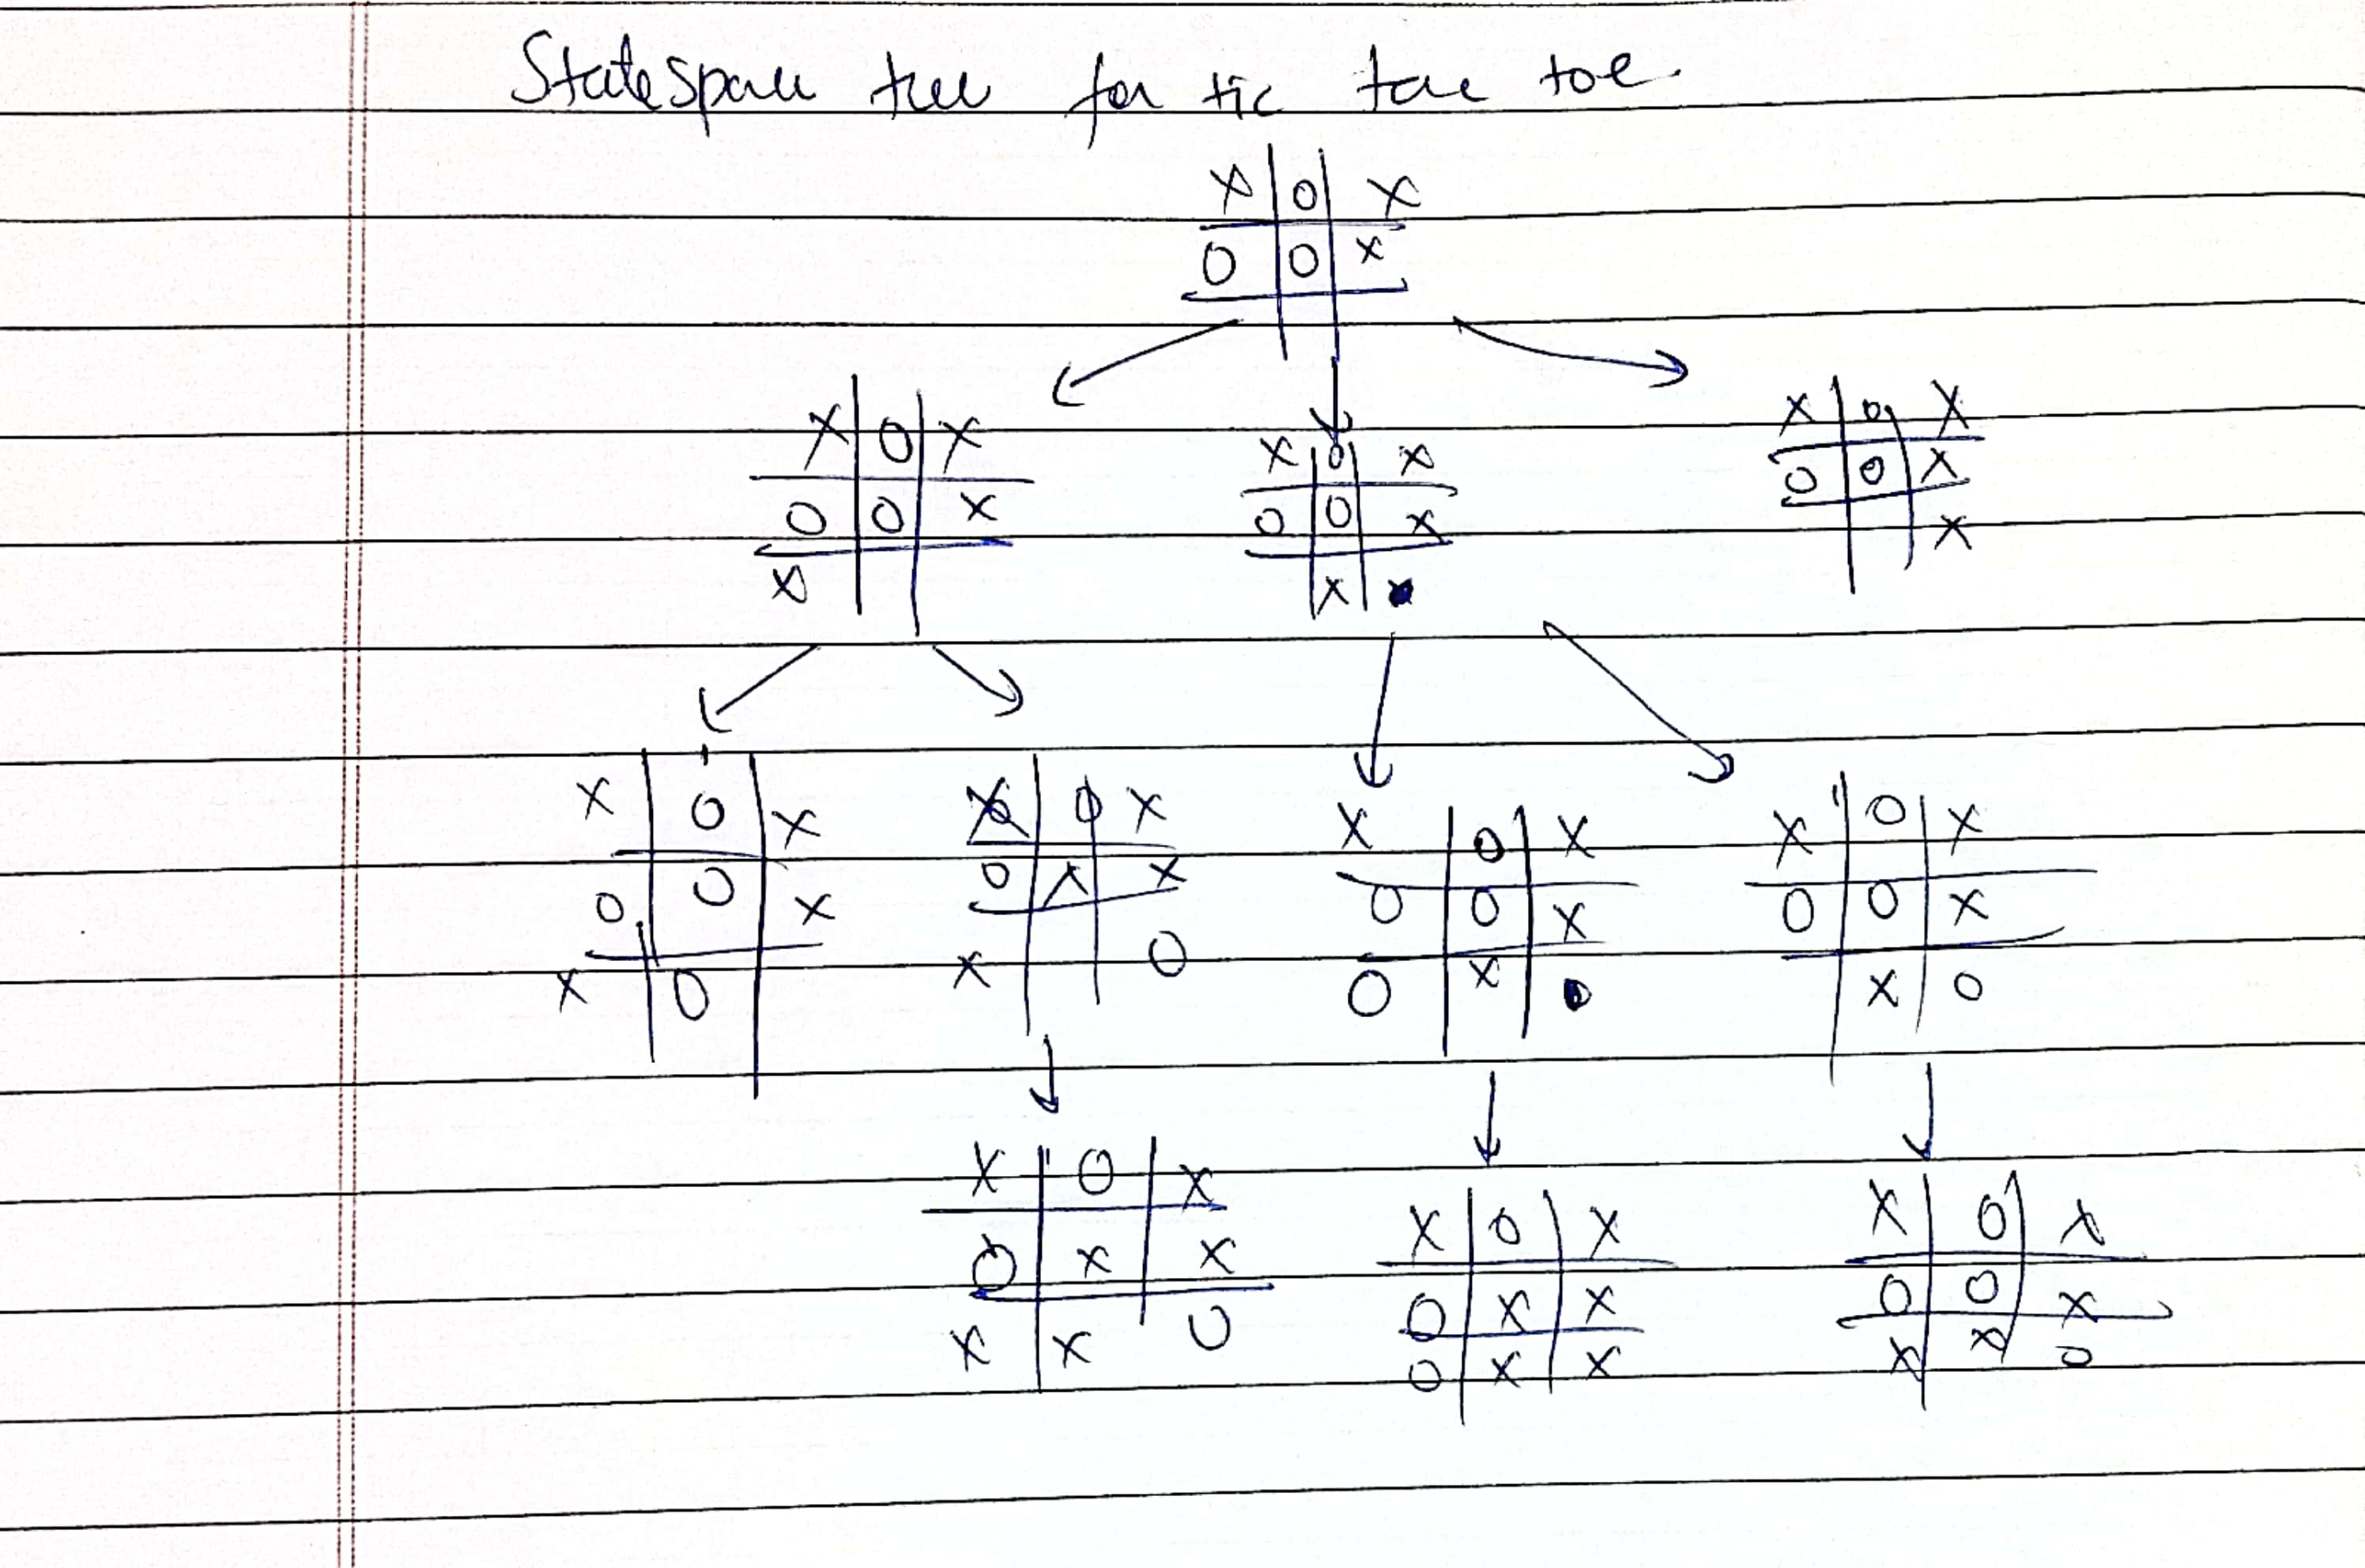 State space tree for tic tac toe
X O X
O O X
X O X
O O X
X
X O X
O O X
X
X O X
O O X
X
X O X
O O X
X O
O X
O X
X O
X O X
O O X
O X
X O X
O O X
X O
X O X
O X X
X X O
X O X
O X X
O X X
X O X
O O X
X X O